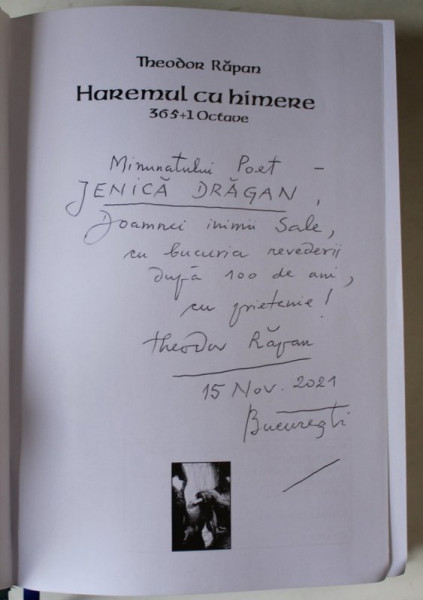 Theodor Răpan
Haremul cu himere
365+1 Octave
Minunatului Poet –
JENICĂ DRĂGAN,
Doamnei inimii Sale,
cu bucuria revederii
după 100 de ani,
cu prietenie!
Theodor Răpan
15 Nov. 2021
București